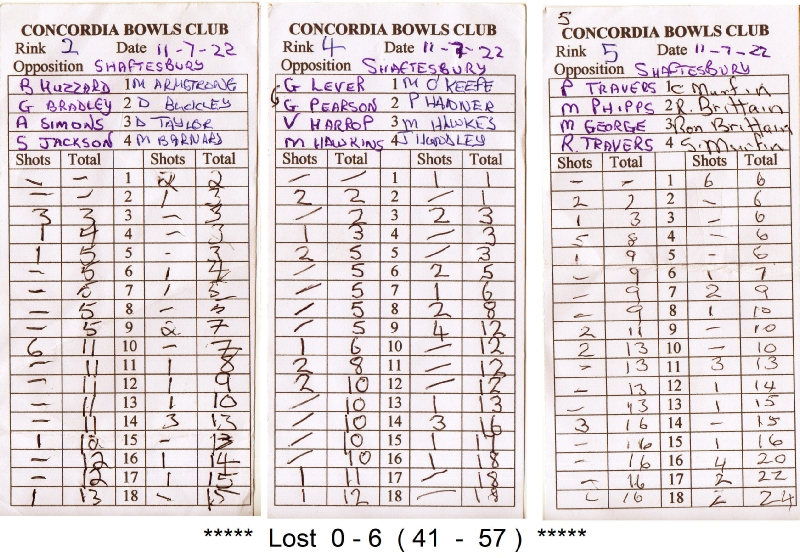 CONCORDIA BOWLS CLUB
Rink 2 Date 11-7-22
Opposition SHAFTESBURY
B HUZZARD 1 M ARMSTRONG
G BRADLEY 2 D BUCKLEY
A SIMONS 3 D TAYLOR
S JACKSON 4 M BARNARD
Shots Total Shots Total
- - 1 2 2
- - 2 1 3
3 3 3 - 3
1 4 4 - 3
1 5 5 - 3
- 5 6 1 4
- 5 7 1 5
- 5 8 - 5
- 5 9 2 7
6 11 10 - 7
- 11 11 1 8
- 11 12 1 9
- 11 13 1 10
- 11 14 3 13
1 12 15 - 13
- 12 16 1 14
- 12 17 1 15
1 13 18 - 15
CONCORDIA BOWLS CLUB
Rink 4 Date 11-7-22
Opposition SHAFTESBURY
G LEVER 1 M O'KEEFE
G PEARSON 2 P HADNER
V HARROP 3 M HAWKES
M HAWKINS 4 J HUNDLEY
Shots Total Shots Total
/ / 1 1 1
2 2 2 / 1
/ 2 3 2 3
1 3 4 / 3
2 5 5 / 3
/ 5 6 2 5
/ 5 7 1 6
/ 5 8 2 8
/ 5 9 4 12
1 6 10 / 12
2 8 11 / 12
2 10 12 / 12
/ 10 13 1 13
/ 10 14 3 16
/ 10 15 1 17
/ 10 16 1 18
1 11 17 / 18
1 12 18 / 18
5
CONCORDIA BOWLS CLUB
Rink 5 Date 11-7-22
Opposition SHAFTESBURY
P TRAVERS 1 C Murfin
M PHIPPS 2 R. Brittain
M GEORGE 3 Ron Brittain
R. TRAVERS 4 S. Murfin
Shots Total Shots Total
- - 1 6 6
2 2 2 - 6
1 3 3 - 6
5 8 4 - 6
1 9 5 - 6
- 9 6 1 7
- 9 7 2 9
- 9 8 1 10
2 11 9 - 10
2 13 10 - 10
- 13 11 3 13
- 13 12 1 14
- 13 13 1 15
3 16 14 - 15
- 16 15 1 16
- 16 16 4 20
- 16 17 2 22
- 16 18 2 24
***** Lost 0 - 6 ( 41 - 57 ) *****